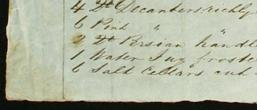 4 Do Decanters richly
6 Pint "
2 Do Persian handle
1 Water Jug froste
6 Salt Cellars cut